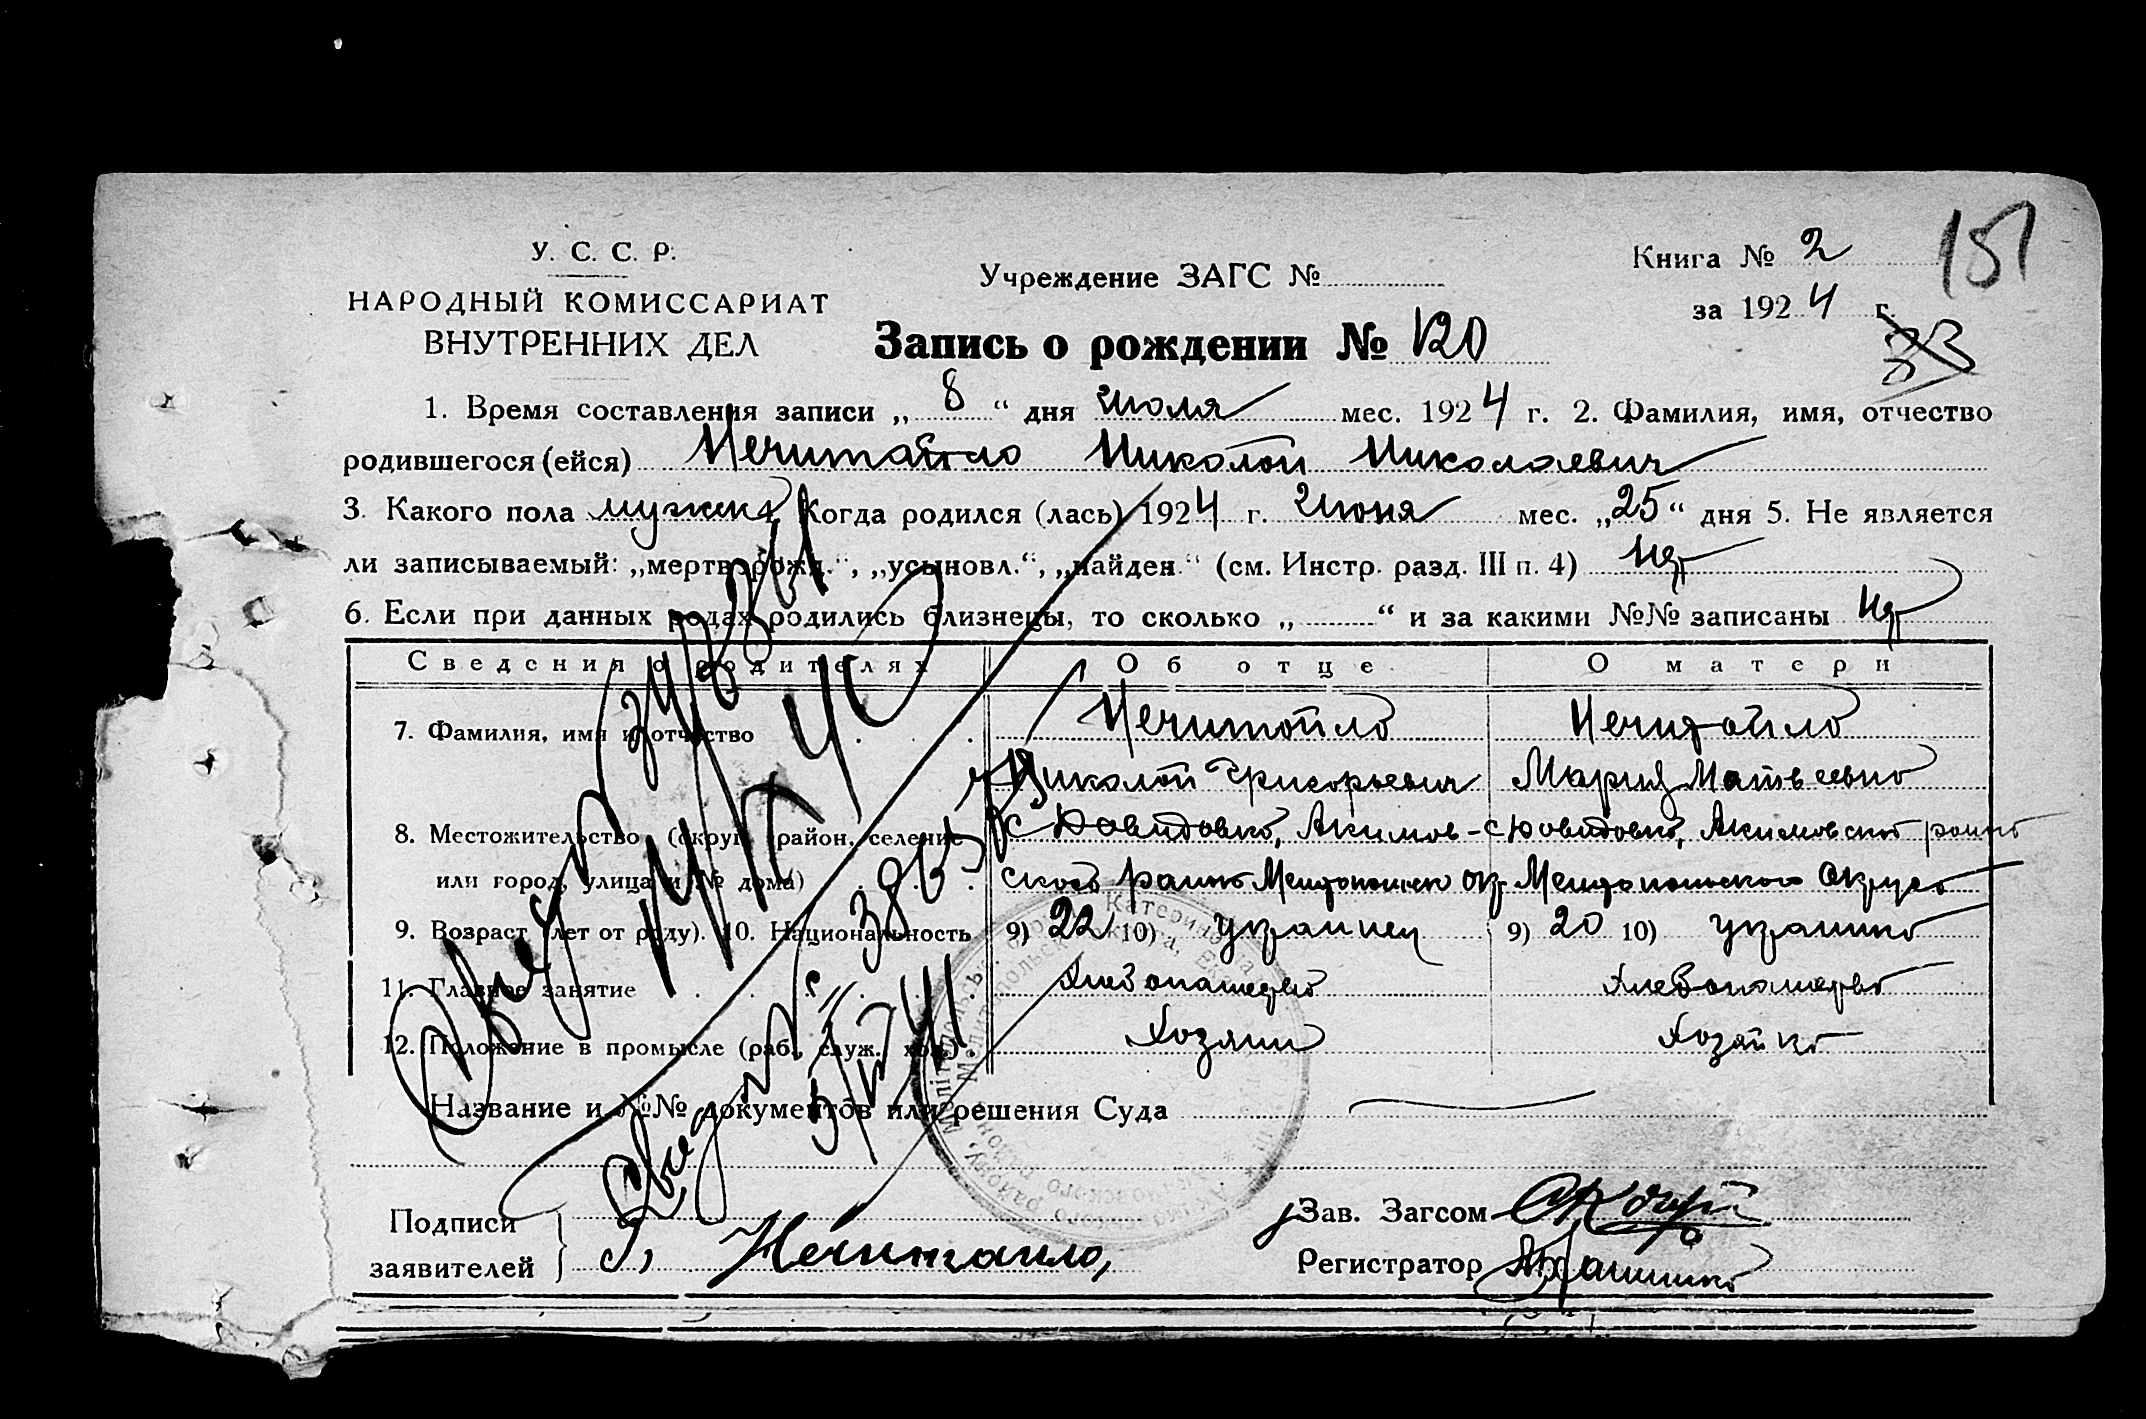 У. С. С. Р.
НАРОДНЫЙ КОМИССАРИАТ
ВНУТРЕННИХ ДЕЛ
Учреждение ЗАГС №
Книга № 2
за 1924 г.
151
33
Запись о рождении № 120
1. Время составления записи „ 8 “ дня июля мес. 1924 г. 2. Фамилия, имя, отчество
родившегося (ейся) Нечитайло Николай Николаевич
3. Какого пола мужск 4. Когда родился (лась) 1924 г. июня мес. „25“ дня 5. Не является
ли записываемый: „мертворожд.“, „усыновл.“, „найден.“ (см. Инстр. разд. III п. 4) нет
6. Если при данных родах родились близнецы, то сколько „ “ и за какими №№ записаны нет
Сведения о родителях Об отце О матери
7. Фамилия, имя и отчество Нечитайло Нечитайло
Николай Григорьевич Мария Матвеевна
8. Местожительство (округ, район, селение с Давидовка, Акимов- с Давидовка, Акимовско
или город, улица и № дома) Мелитопольского Округа
9. Возраст (лет от роду). 10. Национальность 9) 22 10) украинец 9) 20 10) украинка
11. Главное занятие Хлебопашество Хлебопашество
12. Положение в промысле (раб., служ., хоз.) Хозяин Хозяйка
Название и №№ документов или решения Суда
Подписи
заявителей
Нечитаило,
Зав. Загсом
Регистратор